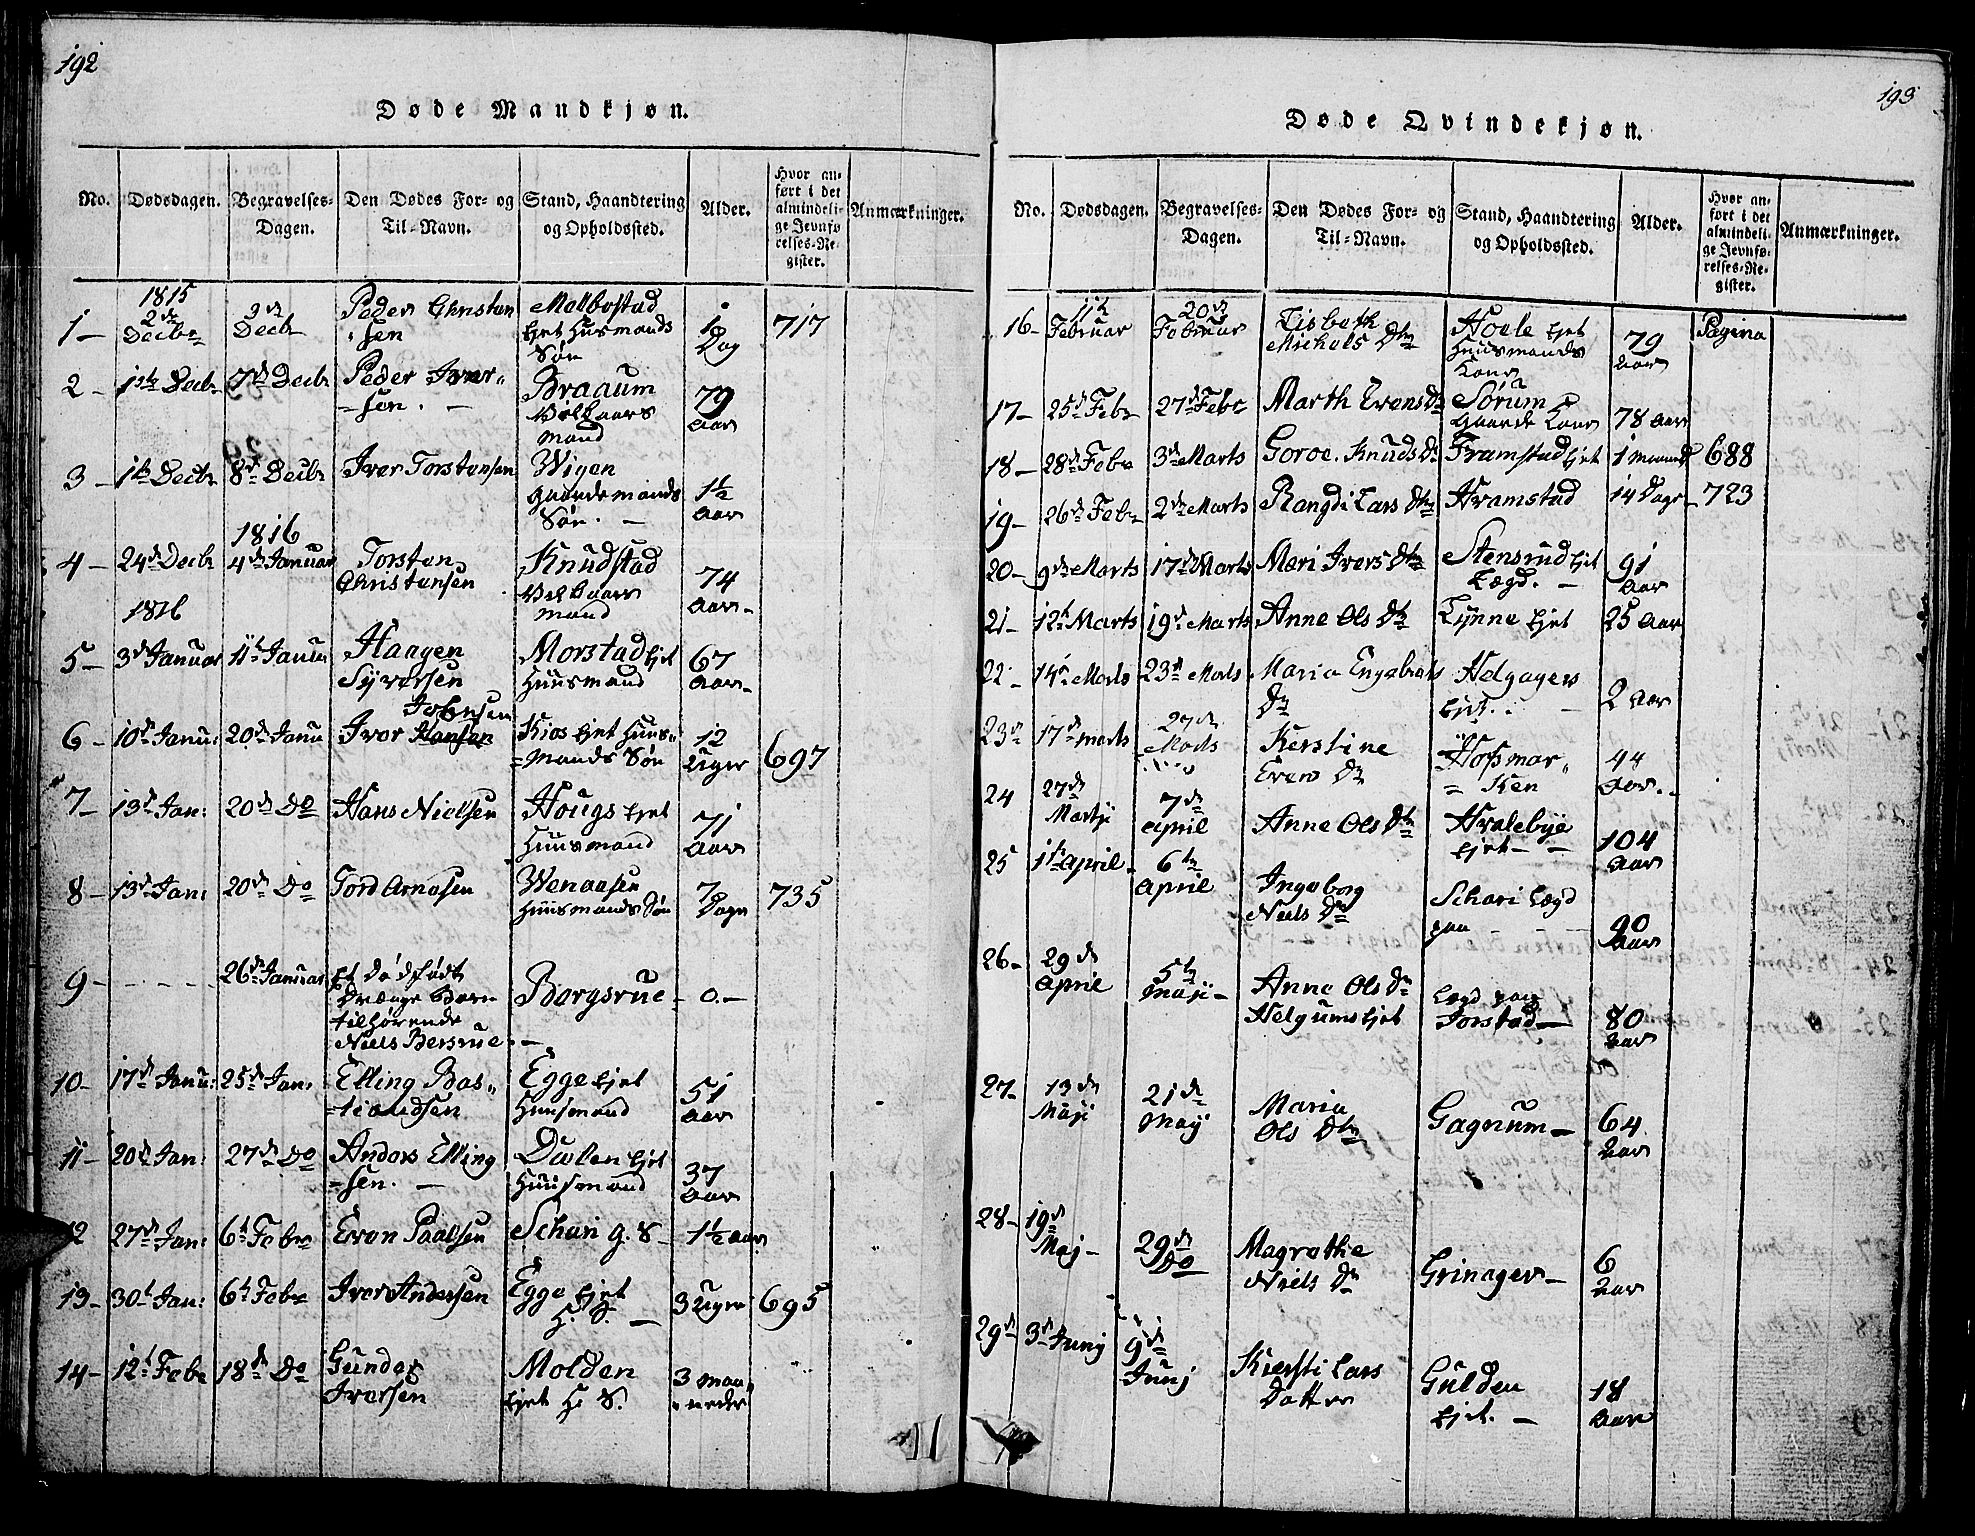 192
Døde Mandkjøn.
No. Dødsdagen. Begravelses-Dagen. Den Dødes For- og Til-Navn. Stand, Haandtering og Opholdssted. Alder. Hvor anført i det almindelige Jevnførelses-Register. Anmærkninger.
1815
1- 2de Decbr 9de Decbr Peder Christensen Melbostad Ejet Huusmands Søn 1 Dag 717
2- 1ste Decbr 7de Decbr Peder Iversen. Braaum Vilkaars mand 79 Aar
3- 1ste Decbr 8de Decbr Iver Torstensen Wigen Gaardemands Søn. 1½ Aar
1816
4- 24de Decbr 4de Januar Torsten Christensen Knudstad Vilkaars mand 74 Aar
1816
5- 3de Januar 11te Januar Haagen Syversen Morstad Ejet Huusmand 67 Aar
6- 10de Janu: 20de Janu Iver Hansen Johnsen Kios Ejet Huusmands Søn 12 Uger 697
7- 13de Jan: 20de Do Hans Nielsen Hougs Ejet Huusmand 71 Aar
8- 13de Jan: 20de Do Tord Arnesen Wenaasen Huusmands Søn 7 Dage 735
9- 26de Januar Et dødfødt Drænge Barn tilhørende Niels Bersrue Borgsrue 0.
10- 17de Janu: 25de Jan: Elling Bastiandsen Egge Ejet Huusmand 51 Aar
11- 20de Jan: 27de Do Anders Ellingsen. Dølen Ejet Huusmand 37 Aar
12 27de Jan: 6te Febr Even Paalsen Schari g. S 1½ Aar
13- 30te Jan: 6te Febr Iver Andersen Egge Ejet H. S. 3 Uger 695
14- 12te Febr 18de Do Gunder Iversen Molden Ejet H. S. 3 maaneder
193
Døde Qvindekjøn.
No. Dødsdagen. Begravelses-Dagen. Den Dødes For- og Til-Navn. Stand, Haandtering og Opholdssted. Alder. Hvor anført i det almindelige Jevnførelses-Register. Anmærkninger.
16- 11te Februar 20de Februar Lisbeth Michels Dtr Hoele Ejet Huusmands Kone 79 Aar Pagina
17- 25de Febr 27de Febr Marth Evens Dr Sørum Gaarde Kone 78 Aar
18- 28de Febr 3de Marts Goroe. Knuds Dr Framstad Ejet 1 maaned 688
19- 26de Febr 2de Marts Rangdi Lars Dtr Hramstad 14 Dage 723
20- 9de Marts 17de Marts Mari Ivers Dtr Stensrud Ejet Lægd. 91 Aar
21- 12te Marts 19de Marts Anne Ols Dtr Lynne Ejet 25 Aar
22- 14de Marts 23de Marts Maria Engebrets Dr Helgagers Ejet. 2 Aar
23de 17de Marts 27de Marts Kerstine Evens Dr Hofsmarken 44 Aar
24 27de Martji 7de April Anne Ols Dtr Hvalebye Ejet 104 Aar
25 1ste April 6te April Ingeborg Niels Dr Schari Lægd paa 90 Aar
26- 29de April 5te Maji Anne Ols Dr Helgums Ejet Lægd paa Jorstad 80 Aar
27- 13de Maji 21de Maij Maria Ols Dtr Gagnum 64 Aar
28- 19de Maj 29de Do Magrethe Niels Dr Grinager 6 Aar
29de 3de Junj 9de Junj Kiersti Lars Datter Gulden Ejet. 18 Aar